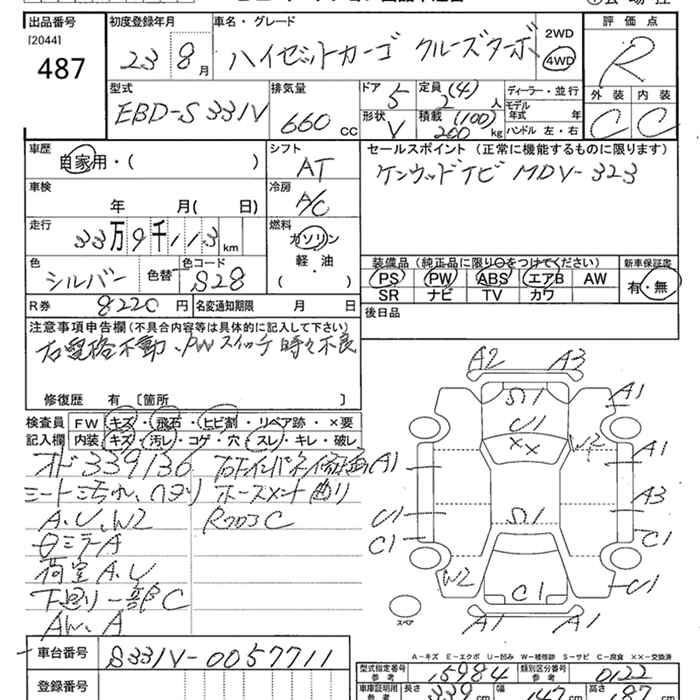 出品番号 初度登録年月 車名・グレード 2WD 評価点
[2044] 487 23 8月 ハイゼットカーゴ クルーズターボ 4WD R
型式 排気量 ドア 定員 (4) ディーラー・並行 外装 内装
EBD-S331V 660cc 5 2人 モデル年式 年 C C
形状 積載 (100)
V 200kg ハンドル 左・右
車歴 シフト セールスポイント (正常に機能するものに限ります)
自家用・( ) AT ケンウッドナビ MDV-323
車検 冷房
年 月( 日) A/C
走行 燃料
33万9千113km ガソリン
軽・油
( )
色 色替 色コード 装備品 (純正品に限り○をつけてください) 新車保証書
シルバー S28 PS PW ABS エアB AW 有・無
SR ナビ TV カワ
R券 8220円 名変通知期限 月 日 後日品
注意事項申告欄(不具合内容等は具体的に記入して下さい)
右電格不動、PWスイッチ時々不良
修復歴 有 [箇所 ]
検査員 FW キズ・飛石・ヒビ割・リペア跡・×要
記入欄 内装 キズ・汚れ・コゲ・穴・スレ・キレ・破レ
オド339136
シート汚れ、ヘタリ
A、U、W2 RフロアC
ロミラーA
荷室A、U
下廻り一部C
AW、A
A2 A3
A1 U1 A1
U1 ×× W2 A1
A1
A3
U1 C1 C1
W2 C1 U1
A1 A1
スペア
A-キズ E-エクボ U-凹み W-補修跡 S-サビ C-腐食 ××-交換済
車台番号 S331V-0057711
型式指定番号 参考 15984 類別区分番号 参考 0122
登録番号
車庫証明用 参考 長さ 339cm 幅 147cm 高さ 187cm